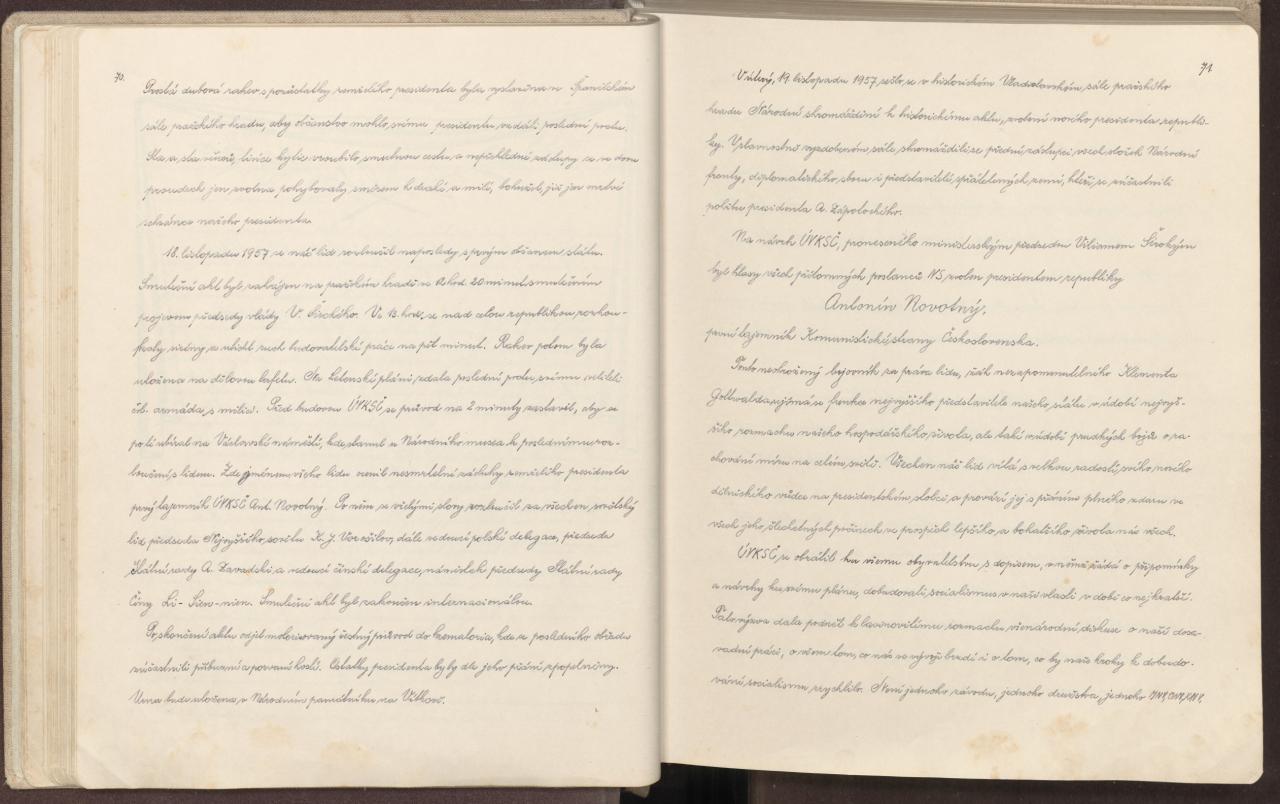 70.
Prostá dubová rakev s pozůstatky zemřelého presidenta byla vystavena ve Španělském
sále pražského hradu, aby občanstvo mohlo svému presidentu vzdáti poslední poctu.
Sta a sta věnců, tisíce kytic vroubilo smutnou cestu a nepřehledné zástupy se ve dvou
proudech jen zvolna pohybovaly směrem k drahé a milé, bohužel, již jen mrtvé
schránce našeho presidenta.
18. listopadu 1957 se náš lid rozloučil naposledy s prvým občanem státu.
Smuteční akt byl zahájen na pražském hradě ve 12 hod. 20 minut smutečním
projevem předsedy vlády V. Širokého. Ve 13. hod. se nad celou republikou rozhou-
kaly sirény a utichl ruch budovatelské práce na pět minut. Rakev potom byla
uložena na dělovou lafetu. Na Letenské pláni vzdala poslední poctu svému veliteli
čsl. armáda s milicí. Před budovou ÚVKSČ se průvod na 2 minuty zastavil, aby se
poté ubíral na Václavské náměstí, kde stanul u Národního musea k poslednímu roz-
loučení s lidem. Zde jménem všeho lidu ocenil nesmrtelné zásluhy zemřelého presidenta
prvý tajemník ÚVKSČ Ant. Novotný. Po něm se vřelými slovy rozloučil za všechen sovětský
lid předseda Nejvyššího sovětu K. J. Vorošilov, dále vedoucí polské delegace, předseda
Státní rady A. Zavadski a vedoucí čínské delegace, náměstek předsedy Státní rady
Číny Li-Siен-nien. Smuteční akt byl zakončen internacionálou.
Po skončení aktu odjel motorisovaný čestný průvod do krematoria, kde se posledního obřadu
zúčastnili příbuzní a pozvaní hosté. Ostatky presidenta byly dle jeho přání zpopelněny.
Urna bude uložena v Národním památníku na Vítkově.
71
V úterý, 19. listopadu 1957 sešlo se v historickém Vladislavském sále pražského
hradu Národní shromáždění k historickému aktu, zvolení nového presidenta republi-
ky. V slavnostně vyzdobeném sále, shromáždili se přední zástupci všech složek Národní
fronty, diplomatického sboru i představitelé spřátelených zemí, kteří se zúčastnili
pohřbu presidenta A. Zápotockého.
Na návrh ÚVKSČ, proneseného ministerským předsedou Viliamem Širokým
byl hlasy všech přítomných poslanců NS zvolen presidentem republiky
Antonín Novotný,
první tajemník Komunistické strany Československa.
Tento neohrožený bojovník za práva lidu, žák nezapomenutelného Klementa
Gottwalda, ujímá se funkce nejvyššího představitele našeho státu v údobí nejvyš-
šího rozmachu našeho hospodářského života, ale také v údobí prudkých bojů o za-
chování míru na celém světě. Všechen náš lid vítá s velkou radostí svého nového
dělnického vůdce na presidentském stolci a provází jej s přáním plného zdaru ve
všech jeho šlechetných pracích ve prospěch lepšího a bohatšího života nás všech.
ÚVKSČ se obrátil ku všemu obyvatelstvu s dopisem, v němž žádá o připomínky
a návrhy ku svému plánu, dobudovati socialismus v naší vlasti v době co nejkratší.
Tato výzva dala podnět k lavinovitému rozmachu všenárodní diskuse o naší dosa-
vadní práci, o všem tom, co nás ve vývoji brzdí i o tom, co by naše kroky k dobudo-
vání socialismu zrychlilo. Není jednoho závodu, jednoho družstva, jednoho MNV, ONV, KNV,